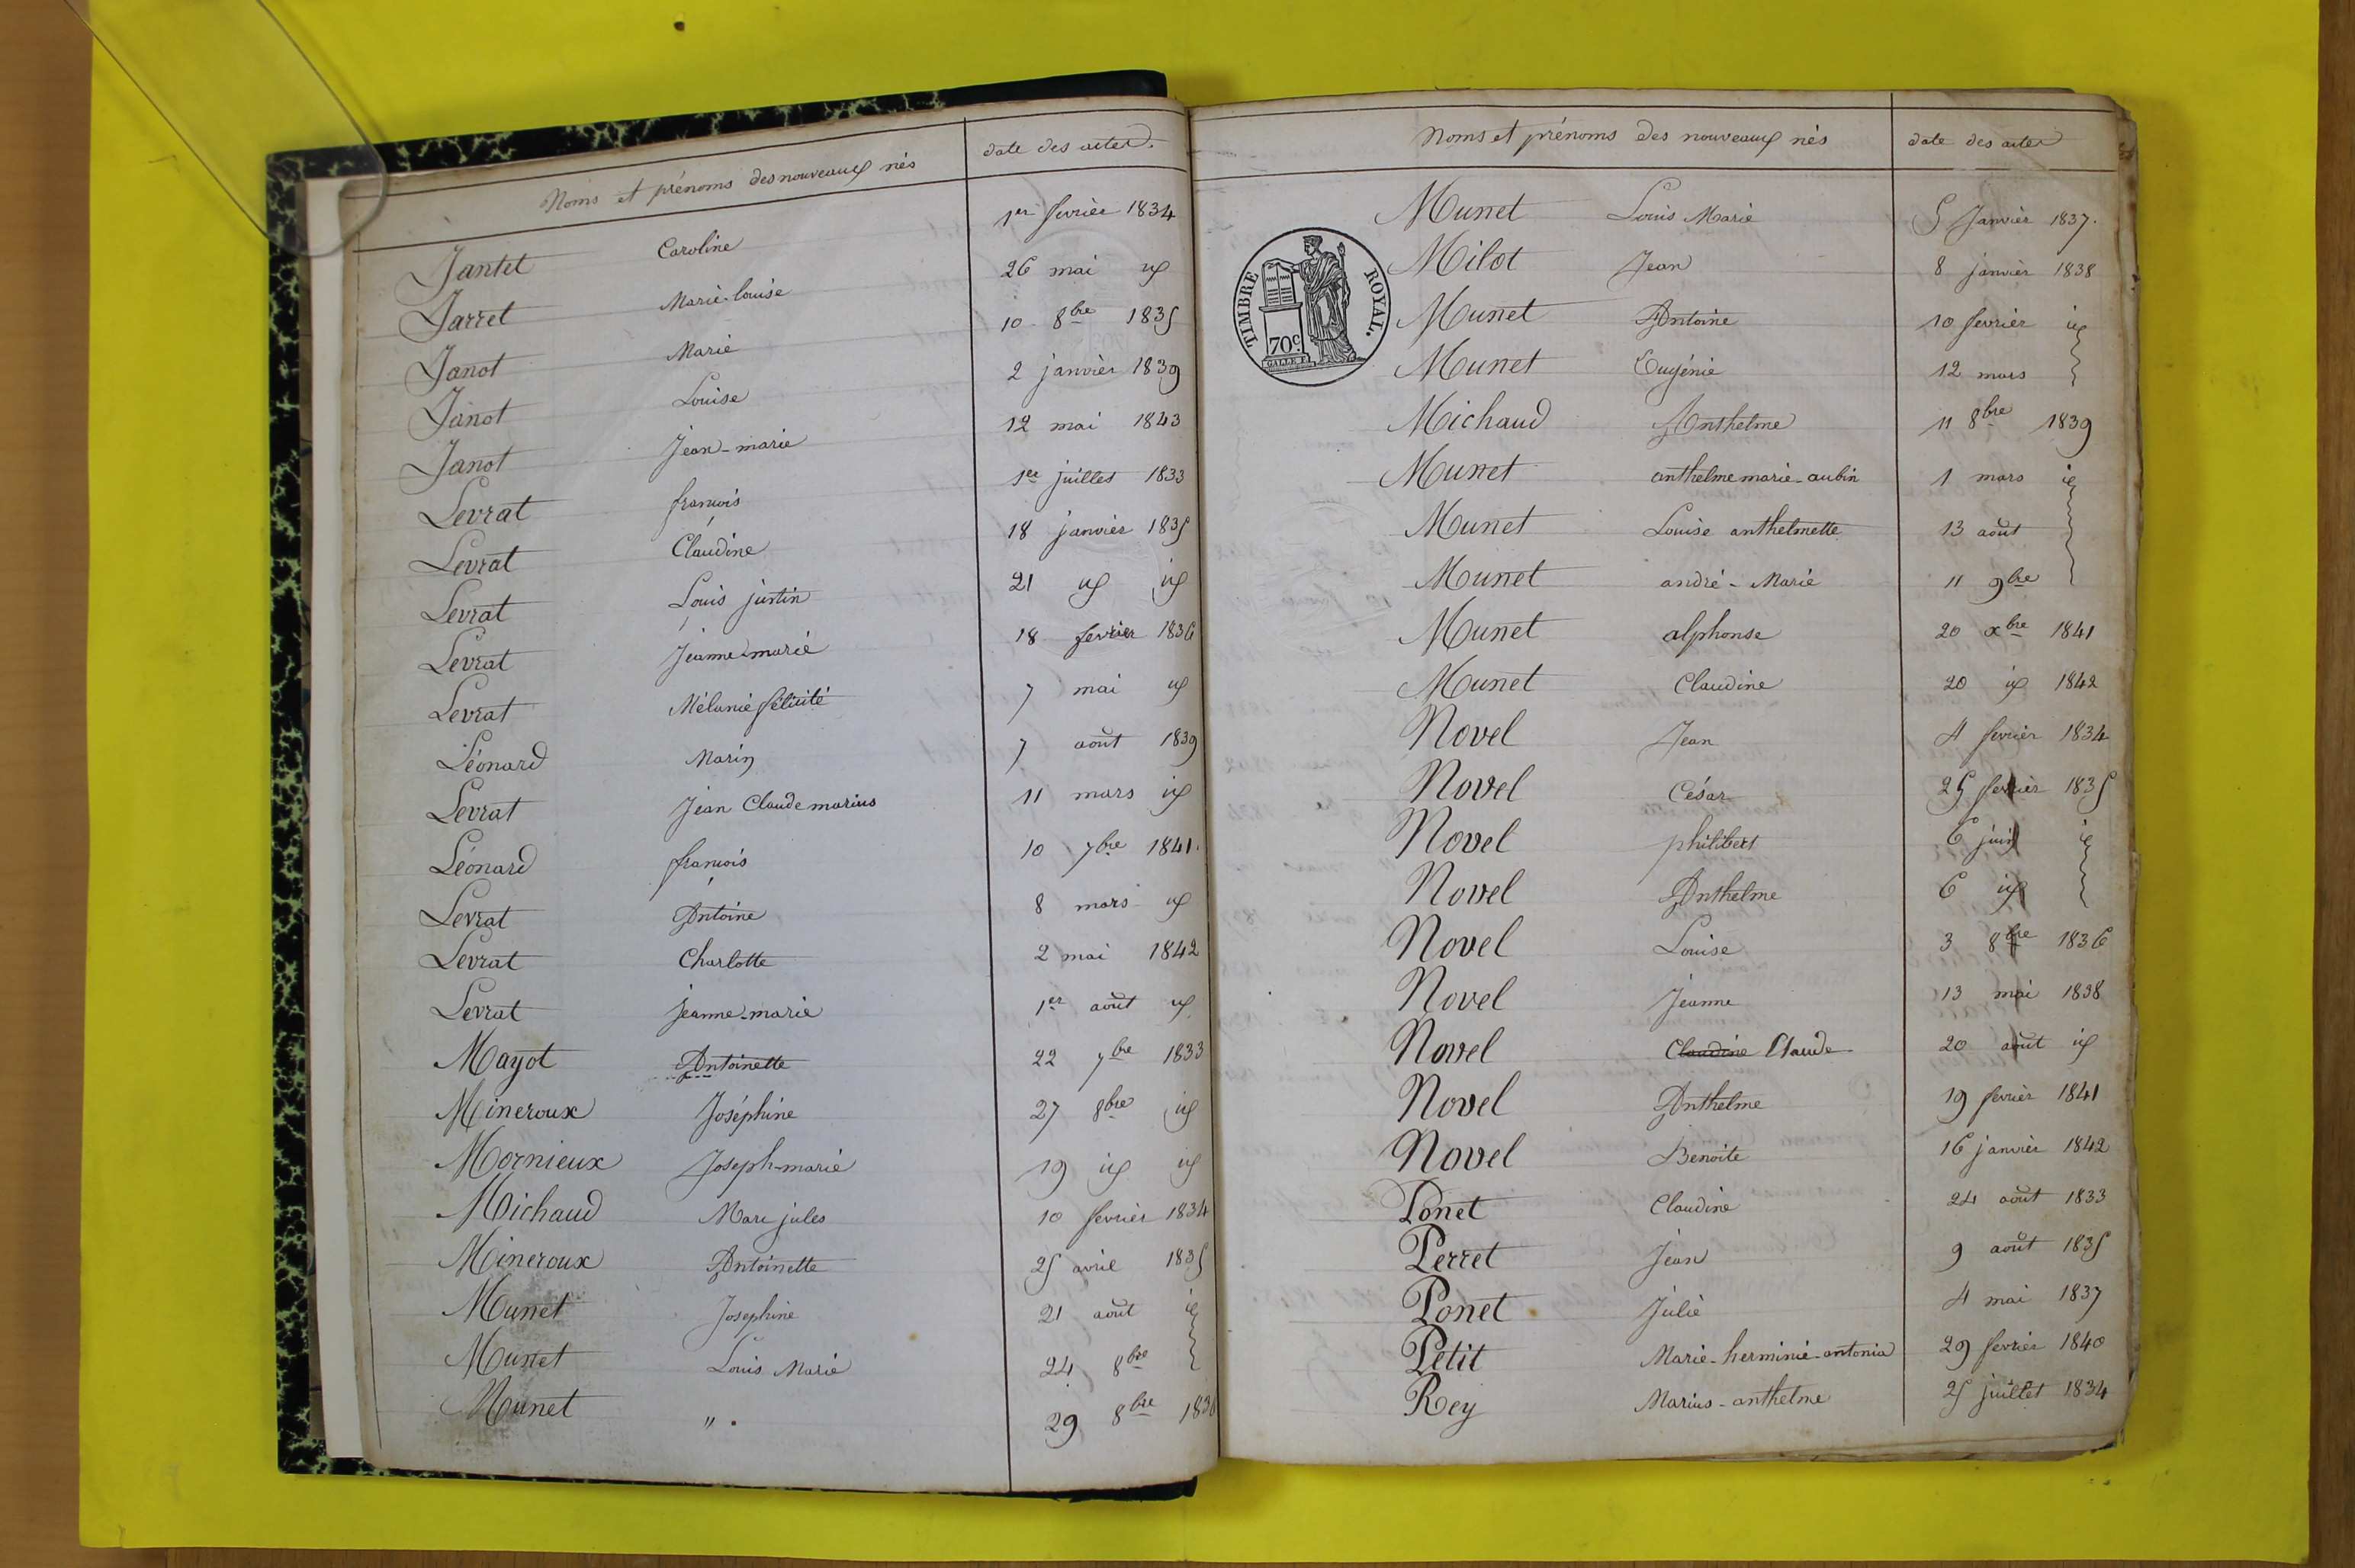 Noms et prénoms des nouveaux nés date des actes
Jantet Caroline 1er fevrier 1834
Jarret Marie-louise 26 mai id
Janot Marie 10 8bre 1835
Janot Louise 2 janvier 1839
Janot Jean-marie 12 mai 1843
Levrat françois 1er juillet 1833
Levrat Claudine 18 janvier 1835
Levrat Louis justin 21 id id
Levrat jeanne-marie 18 fevrier 1836
Levrat Mélanie félicité 7 mai id
Léonard Marin 7 août 1839
Levrat Jean Claude marius 11 mars id
Léonard françois 10 7bre 1841.
Levrat Antoine 8 mars id
Levrat Charlotte 2 mai 1842
Levrat jeanne-marie 1er août id
Mayot Antoinette 22 7bre 1833
Mineroux Joséphine 27 8bre id
Mornieux Joseph-marie 19 id id
Michaud Marc jules 10 fevrier 1834
Mineroux Antoinette 25 avril 1835
Munet Josephine 21 août id
Munet Louis Marie 24 8bre
Munet " 29 8bre 1836
Noms et prénoms des nouveaux nés date des actes
Munet Louis Marie 5 Janvier 1837.
Milot Jean 8 janvier 1838
TIMBRE ROYAL.
70c.
GALLE F.
Munet Antoine 10 fevrier id
Munet Eugénie 12 mars
Michaud Anthelme 11 8bre 1839
Munet anthelme marie-aubin 1 mars id
Munet Louise anthelmette 13 août
Munet andré-Marie 11 9bre
Munet alphonse 20 xbre 1841
Munet Claudine 20 id 1842
Novel Jean 4 fevrier 1834
Novel César 25 fevrier 1835
Novel philibert 6 juin id
Novel Anthelme 6 id
Novel Louise 3 8bre 1836
Novel Jeanne 13 mai 1838
Novel Claudine Claude 20 août id
Novel Anthelme 19 fevrier 1841
Novel Benoite 16 janvier 1842
Ponet Claudine 24 août 1833
Perret Jean 9 août 1835
Ponet Julie 4 mai 1837
Petit Marie-herminie-antonia 29 fevrier 1840
Rey Marius-anthelme 25 juillet 1834